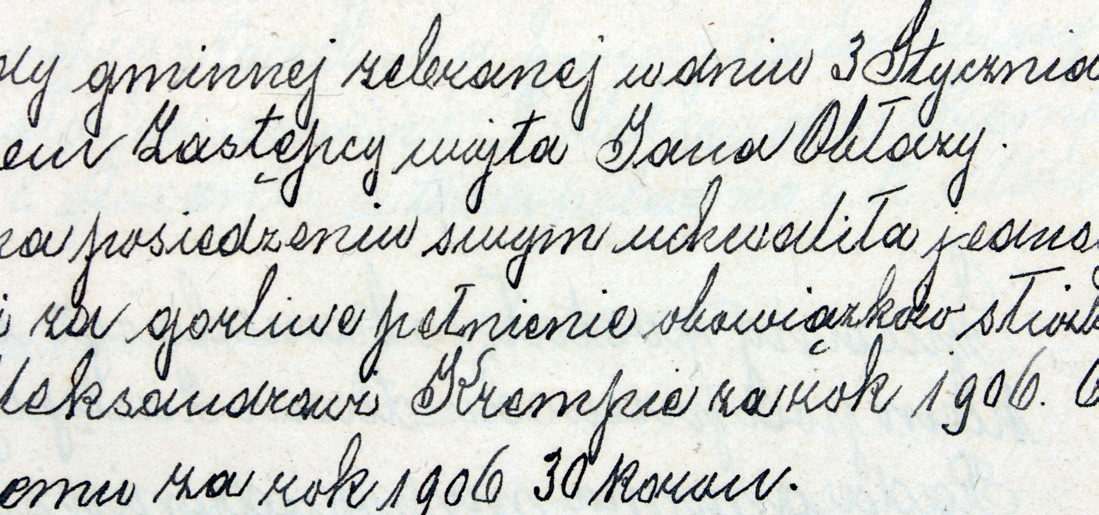 dy gminnej zebranej w dniu 3 Stycznia
em Zastępcy wójta Jana Obłazy.
na posiedzeniu swym uchwaliła jedno
i za gorliwe pełnienie obowiązków służb
leksandrowi Krempie za rok 1906.
emu za rok 1906 30 koron.